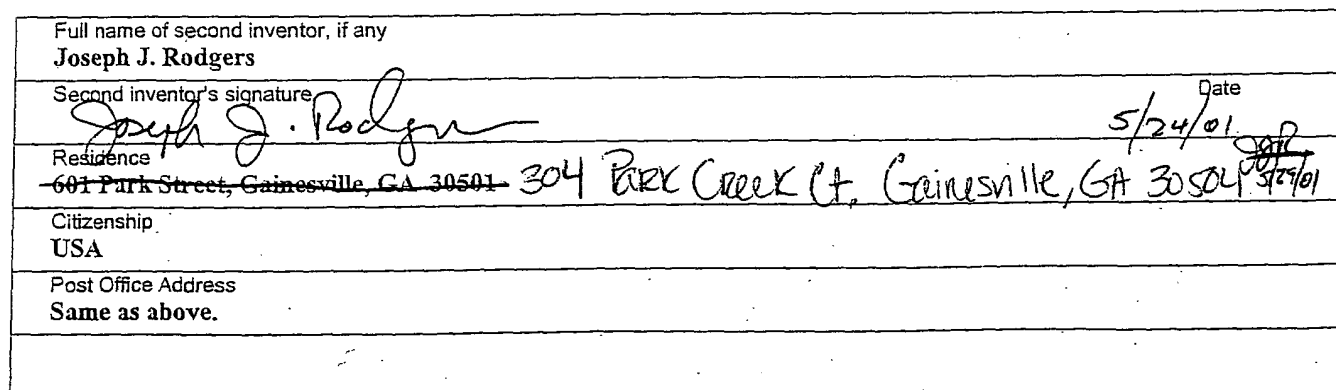 Full name of second inventor, if any
Joseph J. Rodgers
Second inventor's signature
Joseph J. Rodgers
Date
5/24/01
Residence
601 Park Street, Gainesville, GA 30501 304 Park Creek Ct. Gainesville, GA 30504 JJR
5/29/01
Citizenship
USA
Post Office Address
Same as above.